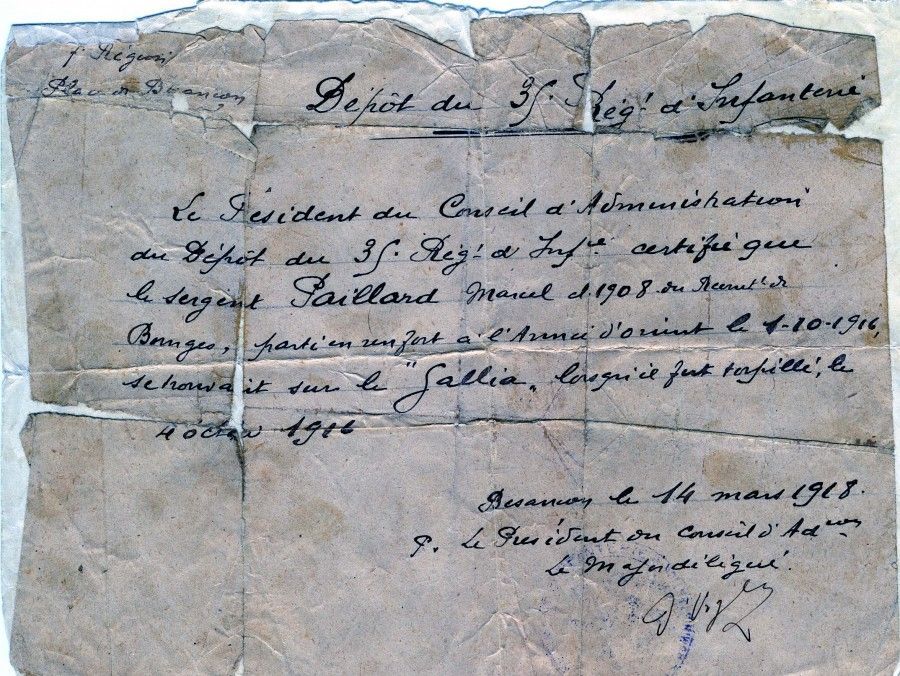 7e Région
Place de Besançon
Dépôt du 35e Régt d'Infanterie
Le Président du Conseil d'Administration
du Dépôt du 35e Régt d'Infie certifie que
le sergent Paillard Marcel cl. 1908 du Recrutt de
Bourges, parti en renfort à l'Armée d'orient le 1-10-1916,
se trouvait sur le "Gallia" lorsqu'il fut torpillé, le
4 octobre 1916
Besançon le 14 mars 1918.
P. Le Président du Conseil d'Adon
Le Major délégué.